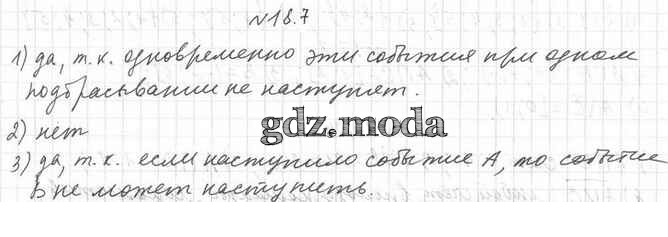 №18.7
1) да, т.к. одновременно эти события при одном
подбрасывании не наступят.
2) нет
gdz.moda
3) да, т.к. если наступило событие А, то событие
В не может наступить.